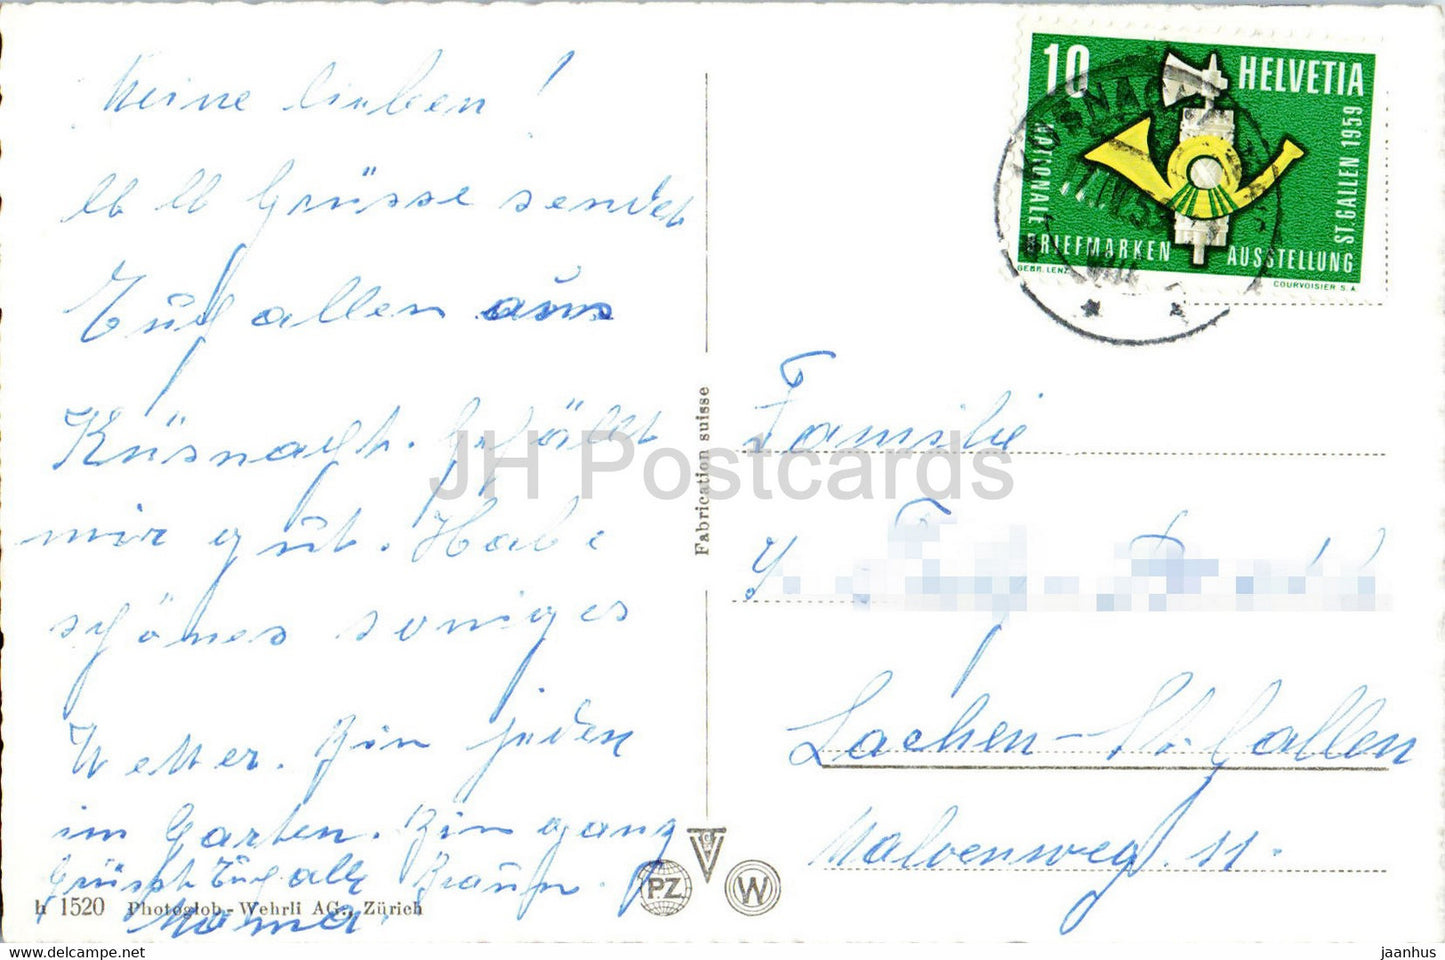 Meine lieben!
lb lb Grüsse sendet
Eüch allen aüs
Küsnacht. Gefällt
mir güt. Habe
schönes soniges
Wetter. Bin jeden
im Garten. Bin ganz
Braün.
Grüsst Eüch alle
Mama.
h 1520 Photoglob-Wehrli AG., Zürich
Fabrication suisse
PZ
W
10 HELVETIA
NATIONALE BRIEFMARKEN AUSSTELLUNG ST. GALLEN 1959
GEBR. LENZ
COURVOISIER S.A.
Familie
Lachen-St. Gallen
Malvenweg. 11.
JH Postcards
jaanhus
https://jhpostcards.com